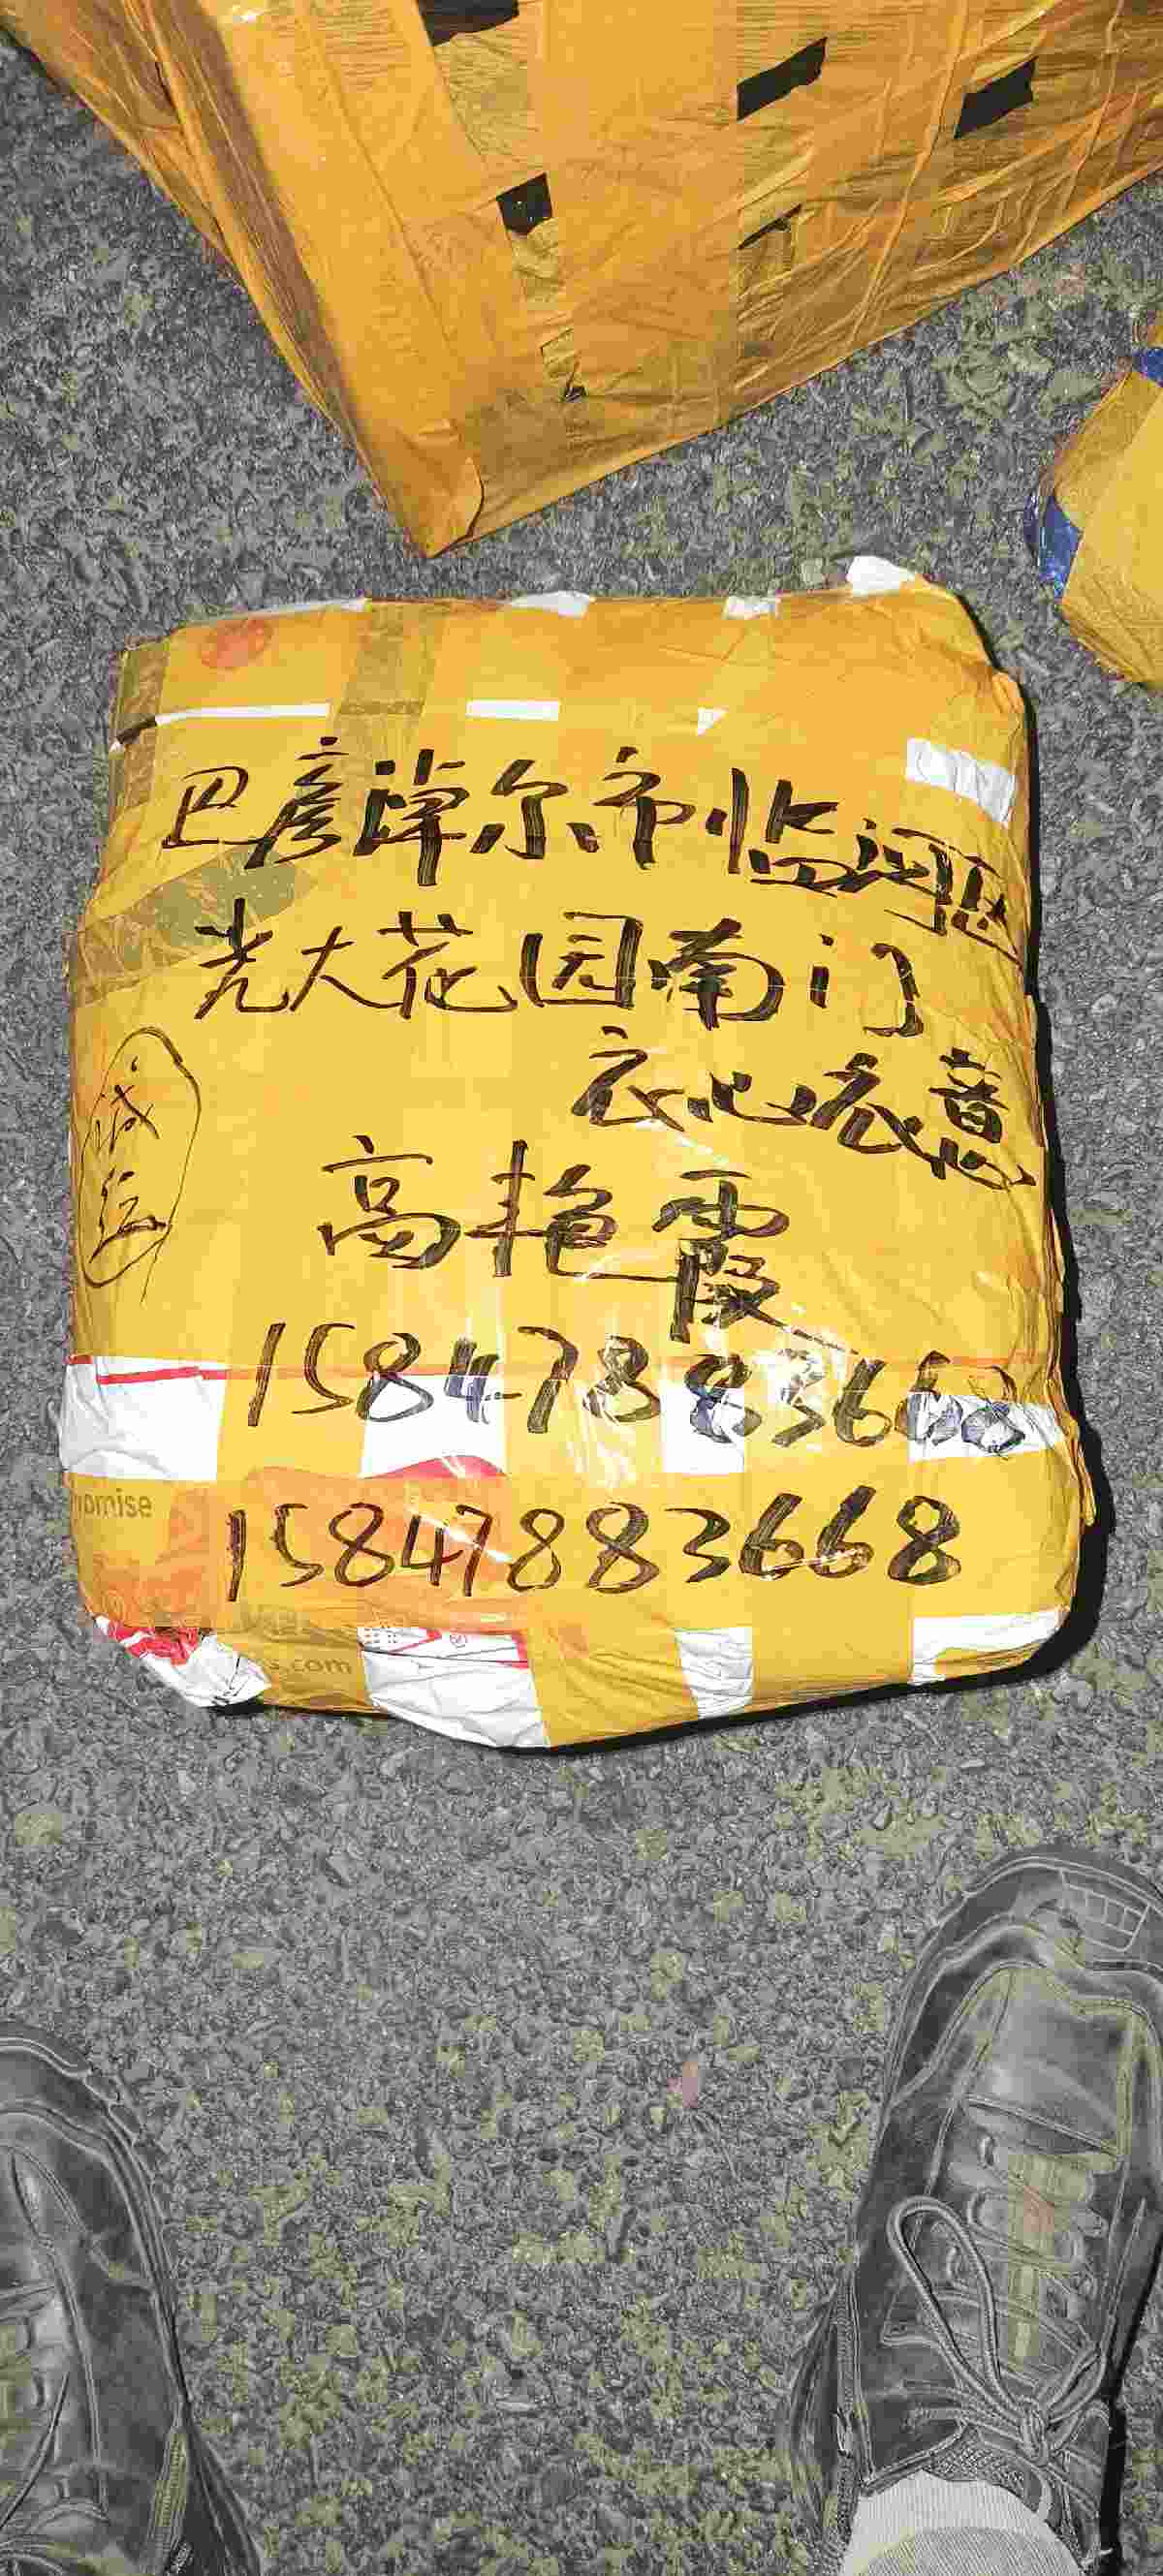 巴彦淖尔市临河区
光大花园南门
衣心衣意
诚运
高艳霞
15847883668
15847883668
omise
s.com